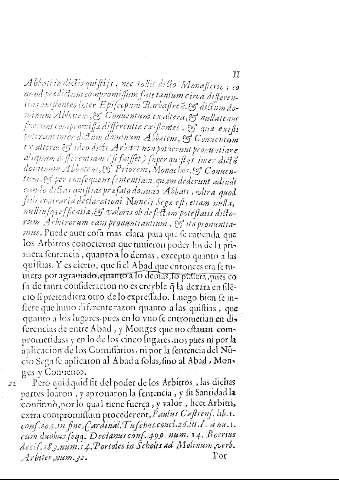 11
Abbatia dictis quistijs, nec possit dicto Monasterio, eo
quod prædictum compromissum fuit tantum circa differen-
tias existentes inter Episcopum Barbastreñ. & dictum do-
minum Abbatem, & Conventum ex altera, & nullatenus
fuerunt compromissæ differentiæ existentes, & quæ existi
poterant inter dictum dominum Abbatem, & Conventum
ex altera & ideo dicti Arbitri non potuerunt pronuntiare
aliquam differentiam (si fuisset) super quistijs inter dictũ
dominum Abbatem, & Priorem, Monachos, & Conven-
tum, & per consequens sententiam, quam dederunt adiudi
cando dictas quistias præfato domino Abbati, ultra quod
fuit contraria declarationi Nuncij Sega est, etiam nulla,
nulliusque efficatia, & valoris ob defectum potestatis dicto-
rum Arbitrorum eam pronuntiantium, & ita pronuntia-
mus. Puede auer cosa mas clara para que se entienda que
los Arbitros conocieron que tuuieron poder los de la pri-
mera sentencia, quanto a lo demas, excepto quanto a las
quistias. Y es cierto, que si el Abad que entonces era se tu-
uiera por agrauiado, quanto a lo demas, lo pidiera, pues co
sa de tanta consideracion no es creyble q̃ la dexara en silē-
cio si pretendiera otro de lo expressado. Luego bien se in-
fiere que huuo diferente razon quanto a las quistias, que
quanto a los lugares pues en lo vno se entrometian en di-
ferencias de entre Abad, y Monges que no estauan com-
prometidas, y en lo de los cinco lugares, no; pues ni por la
aplicacion de los Comissarios, ni por la sentencia del Nũ-
cio Sega se aplicaron al Abad a solas, sino al Abad, Mon-
ges y Conuento.
22 Pero quidquid sit del poder de los Arbitros, las dichas
partes loaron, y aprouaron la sentencia, y su Santidad la
confirmò, por lo qual tiene fuerça, y valor, licet Arbitri,
extra compromissum procederent, Paulus Castrens. lib. 1.
cons. 20. in fine, Cardinal. Tuschus concl. 26. lit. I. a nu. 1.
cum duobus seqq. Decianus cons. 499. num. 14. Borrius
decis. 183. num. 14. Portoles in Schol. ad Molinum, verb.
Arbiter, num. 32.
Por